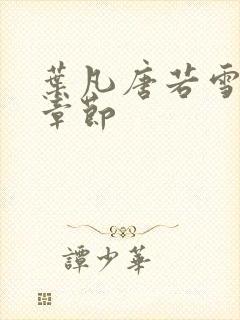 葉凡唐若雪
章節
譚少華